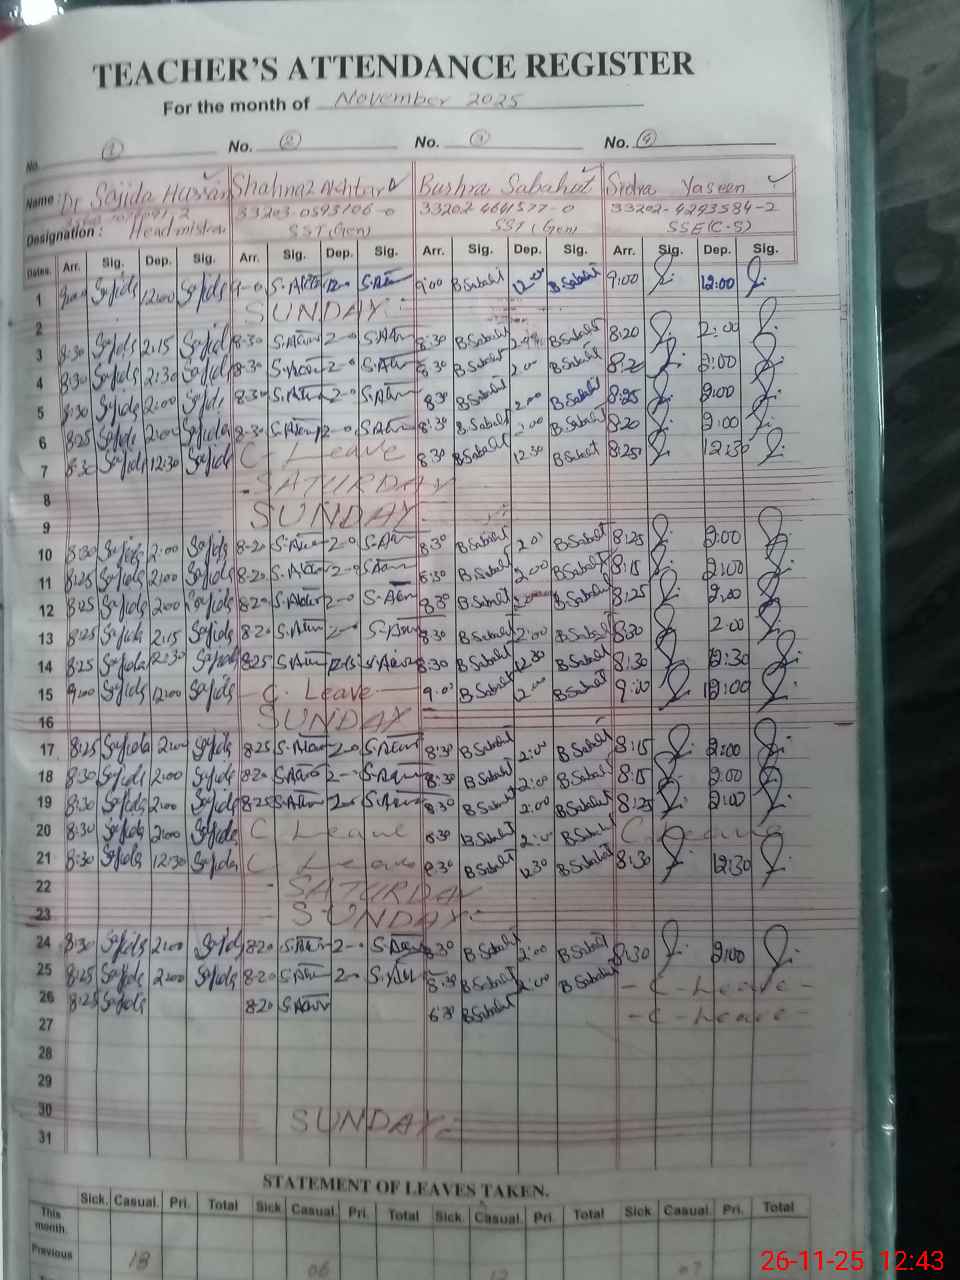 TEACHER'S ATTENDANCE REGISTER
For the month of November 2025
No. 1 No. 2 No. 3 No. 4
Name: Dr Sajida Hussain Shahnaz Akhtar Bushra Sabahat Sidra Yaseen
33203-0593106-0 33202-4641577-0 33202-4293584-2
Designation: Headmistress SST(Gen) SST(Gen) SSE(C-S)
Dates. Arr. Sig. Dep. Sig. Arr. Sig. Dep. Sig. Arr. Sig. Dep. Sig. Arr. Sig. Dep. Sig.
1 9:00 Sajida 12:00 Sajida 9-0 12-0 9:00 B Sabahat 12:00 B Sabahat 9:00 12:00
2 SUNDAY
3 8:30 Sajida 2:15 Sajida 8-30 2-0 8:30 B Sabahat B Sabahat 8:20 2:00
4 8:30 Sajida 2:30 Sajida 8-30 2-0 8:30 B Sabahat 2:00 B Sabahat 8:20 2:00
5 8:30 Sajida 2:00 Sajida 8-30 2-0 8:30 B Sabahat 2:00 B Sabahat 8:25 2:00
6 8:25 Sajida 2:00 Sajida 8-30 2-0 8:30 B Sabahat 2:00 B Sabahat 8:20 2:00
7 8:30 Sajida 12:30 Sajida C-Leave 8:30 B Sabahat 12:30 B Sabahat 8:25 12:30
8 SATURDAY
9 SUNDAY
10 8:30 Sajida 2:00 Sajida 8-20 2-0 8:30 B Sabahat 2:00 B Sabahat 8:25 2:00
11 8:25 Sajida 2:00 Sajida 8-20 2-0 8:30 B Sabahat 2:00 B Sabahat 8:15 2:00
12 8:25 Sajida 2:00 Sajida 8-20 2-0 8:30 B Sabahat B Sabahat 8:25 2:00
13 8:25 Sajida 2:15 Sajida 8-20 2-0 8:30 B Sabahat 2:00 B Sabahat 8:30 2:00
14 8:25 Sajida 12:30 Sajida 8-25 8:30 B Sabahat 12:30 B Sabahat 8:30 12:30
15 9:00 Sajida 12:00 Sajida C. Leave 9:00 B Sabahat 12:00 B Sabahat 9:00 12:00
16 SUNDAY
17. 8:25 Sajida 2:00 Sajida 8-25 2-0 8:30 B Sabahat 2:00 B Sabahat 8:15 2:00
18 8:30 Sajida 2:00 Sajida 8-20 2-0 8:30 B Sabahat 2:00 B Sabahat 8:15 2:00
19 8:30 Sajida 2:00 Sajida 8-25 2-0 8:30 B Sabahat 2:00 B Sabahat 8:25 2:00
20 8:30 Sajida 2:00 Sajida C Leave 8:30 B Sabahat 2:00 B Sabahat C-Leave
21 8:30 Sajida 12:30 Sajida C Leave 8:30 B Sabahat 12:30 B Sabahat 8:30 12:30
22 SATURDAY
23 SUNDAY
24 8:30 Sajida 2:00 Sajida 8-20 2-0 8:30 B Sabahat 2:00 B Sabahat 8:30 2:00
25 8:25 Sajida 2:00 Sajida 8-20 2-0 8:30 B Sabahat 2:00 B Sabahat -C-Leave-
26 8:25 Sajida 8-20 8:30 B Sabahat -C-Leave-
27
28
29
30 SUNDAY
31
STATEMENT OF LEAVES TAKEN.
Sick. Casual. Pri. Total Sick Casual. Pri. Total Sick. Casual. Pri. Total Sick Casual. Pri. Total
This month.
Previous 18 06 12 07
26-11-25 12:43